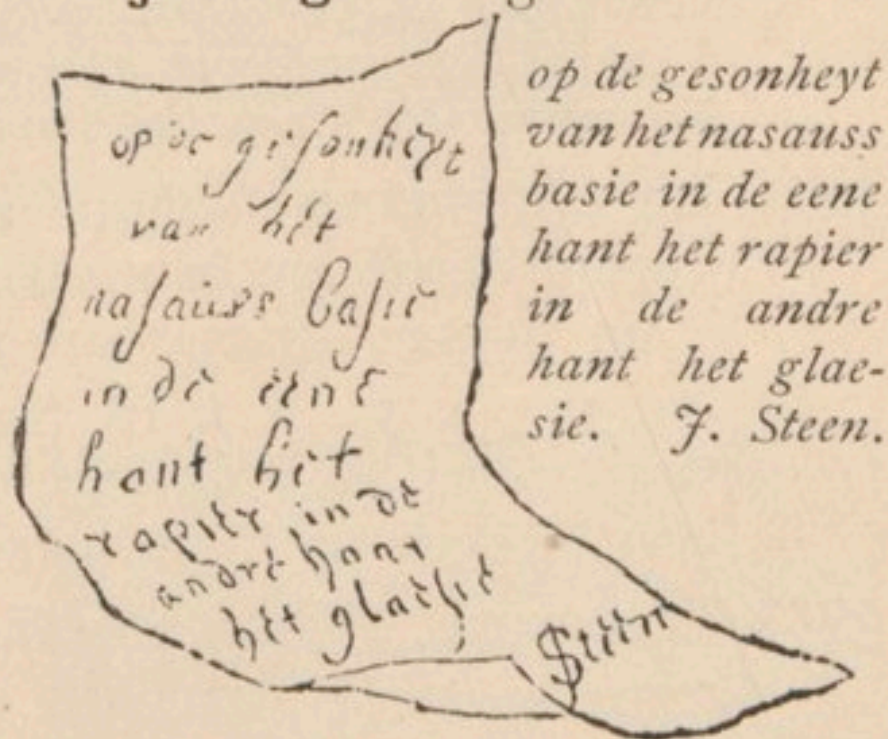 op de gesonheyt
van het
nasauss basie
in de eene
hant het
rapier in de
andre hant
het glaesie
JSteen
op de gesonheyt
van het nasauss
basie in de eene
hant het rapier
in de andre
hant het glae-
sie. J. Steen.